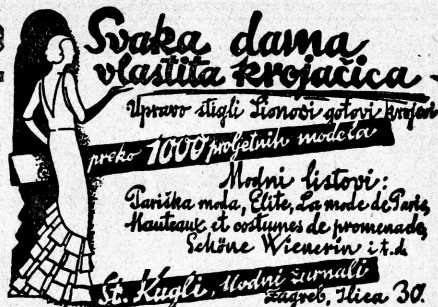 Svaka dama
vlastita krojačica -
Upravo stigli Lionosi gotovi krojevi
preko 1000 proljetnih modela
Modni listovi:
Pariška moda, Elite, La mode de Paris,
Manteaux et costumes de promenade,
Schöne Wienerin i t. d.
St. Kugli, Modni žurnali
Zagreb, Ilica 30.